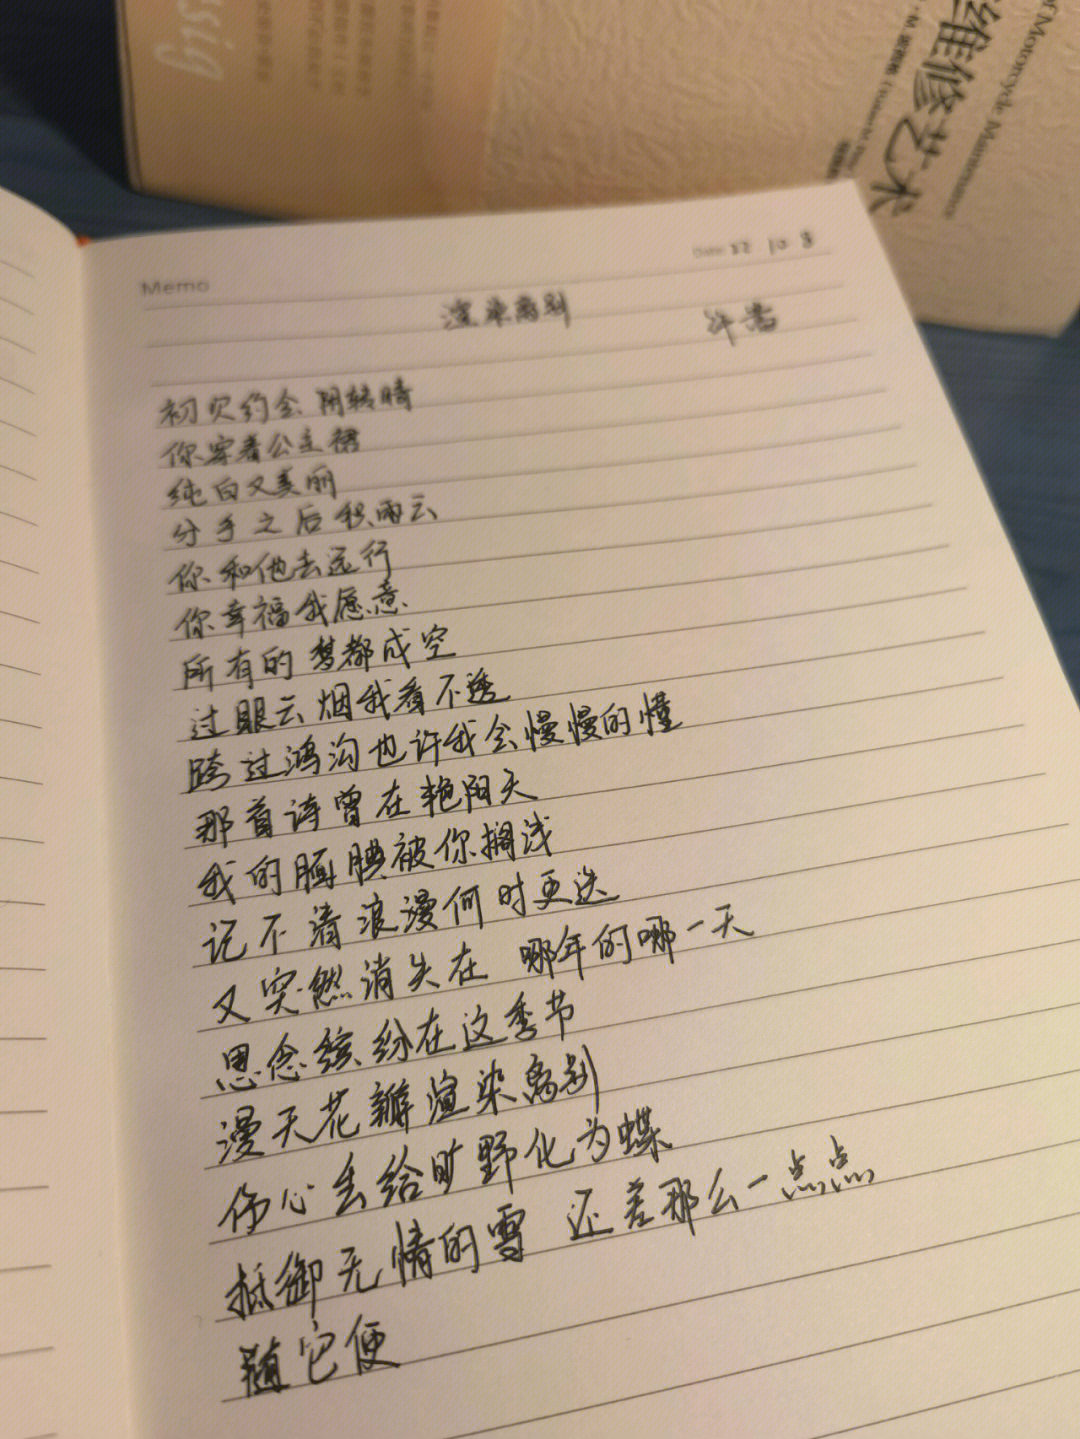 ssig
of Motorcycle Maintenance
维修艺术
Memo
Date 22 10 8
渲染离别
许嵩
初次约会 阴转晴
你穿着公主裙
纯白又美丽
分手之后积雨云
你和他去远行
你幸福我愿意
所有的梦都成空
过眼云烟我看不透
跨过鸿沟也许我会慢慢的懂
那首诗曾在艳阳天
我的腼腆被你搁浅
记不清浪漫何时更迭
又突然消失在 哪年的哪一天
思念缤纷在这季节
漫天花瓣渲染离别
伤心丢给旷野化为蝶
抵御无情的雪 还差那么一点点
随它便